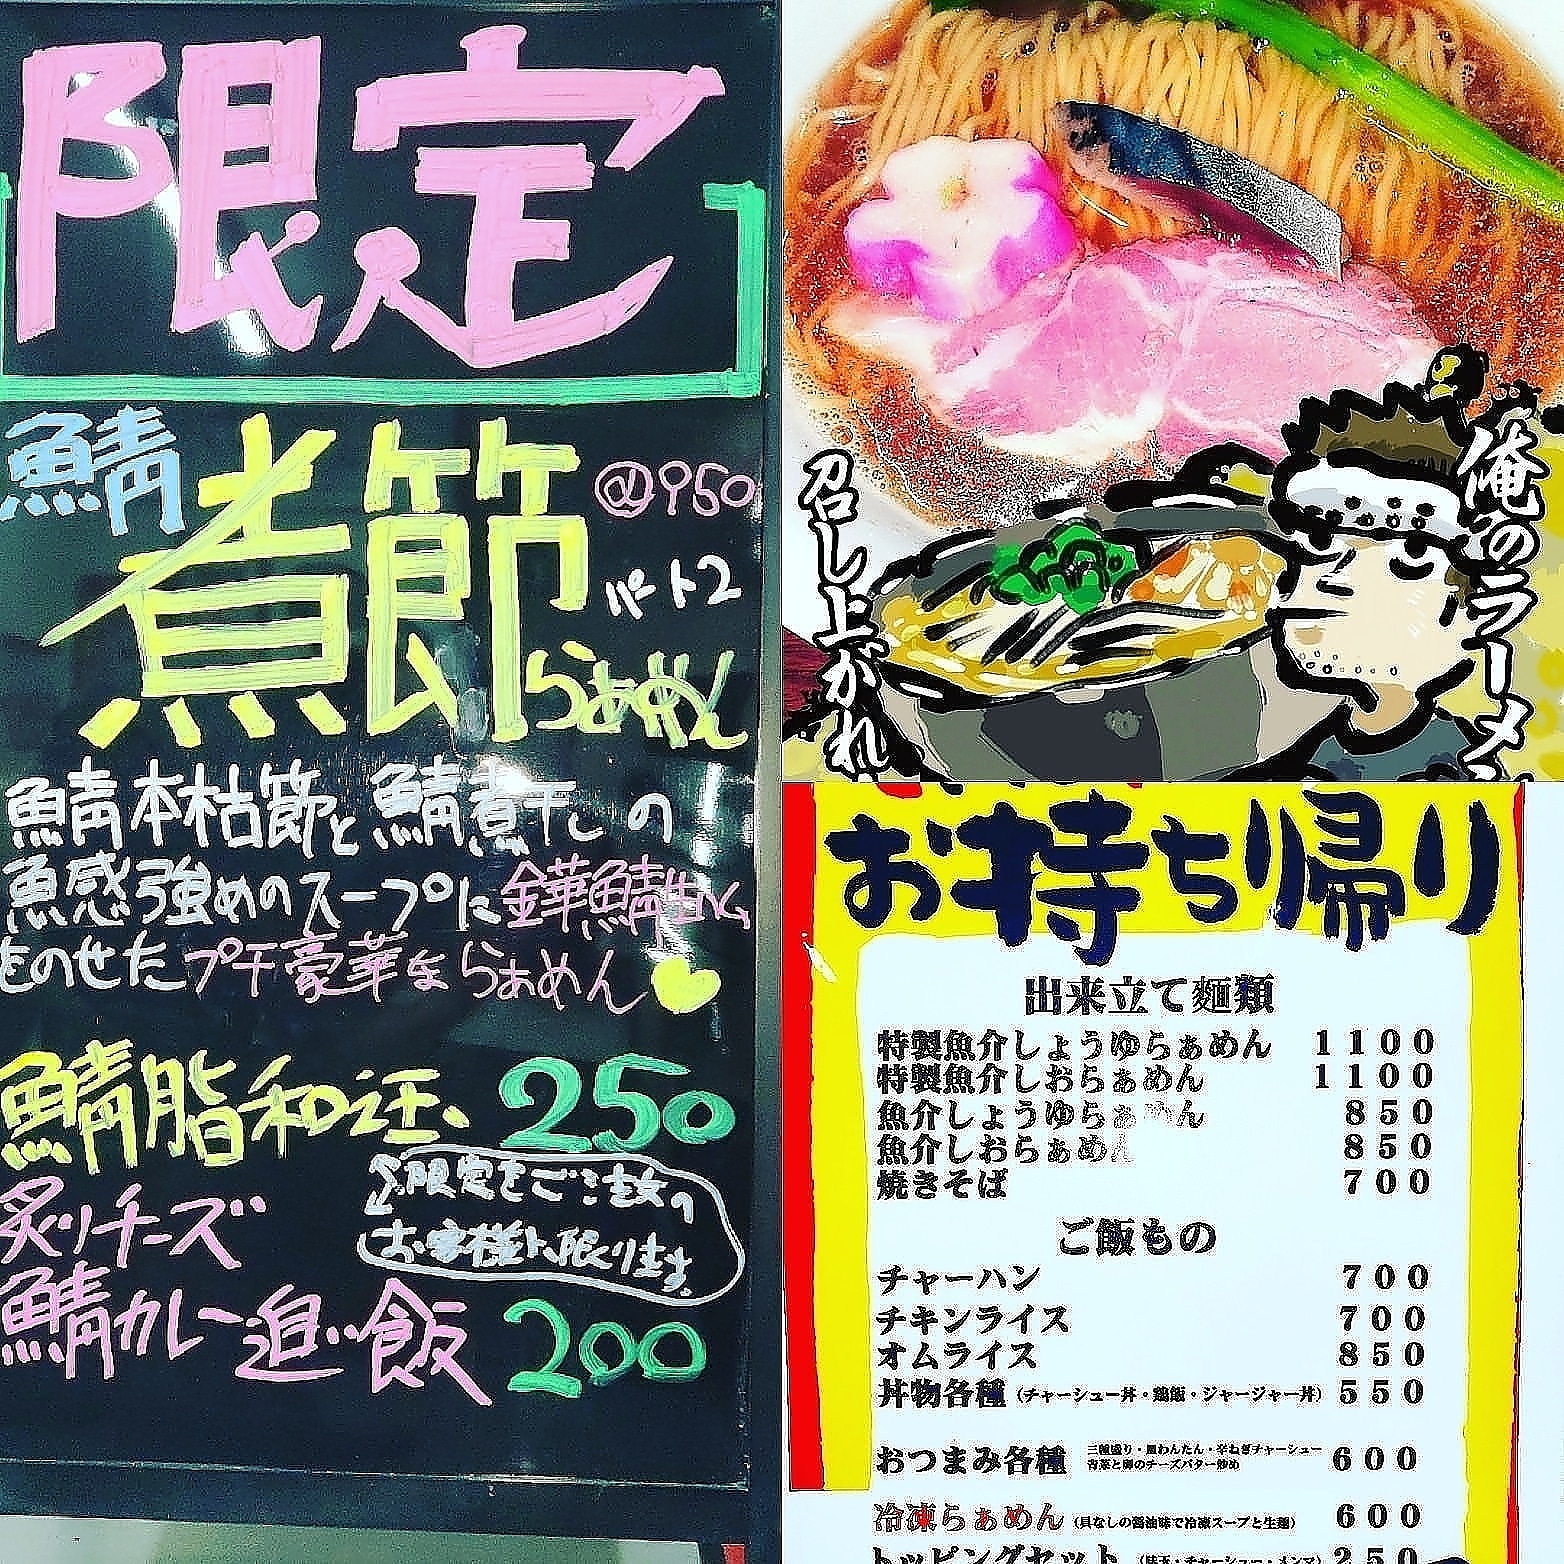 限定
鯖
煮節
らぁめん
@950
パート2
鯖本枯節と鯖煮干しの
魚感強めのスープに金華鯖生ハム
をのせたプチ豪華ならぁめん
鯖脂和え玉 250
限定をご注文の
お客様に限ります。
炙りチーズ
鯖カレー追い飯 200
俺のラーメン
召し上がれ
お持ち帰り
出来立て麺類
特製魚介しょうゆらぁめん 1100
特製魚介しおらぁめん 1100
魚介しょうゆらぁめん 850
魚介しおらぁめん 850
焼きそば 700
ご飯もの
チャーハン 700
チキンライス 700
オムライス 850
丼物各種(チャーシュー丼・鶏飯・ジャージャー丼) 550
おつまみ各種 三種盛り・皿わんたん・辛ねぎチャーシュー 600
青菜と卵のチーズバター炒め
冷凍らぁめん(具なしの醤油味で冷凍スープと生麺) 600
トッピングセット(味玉・チャーシュー・メンマ) 250